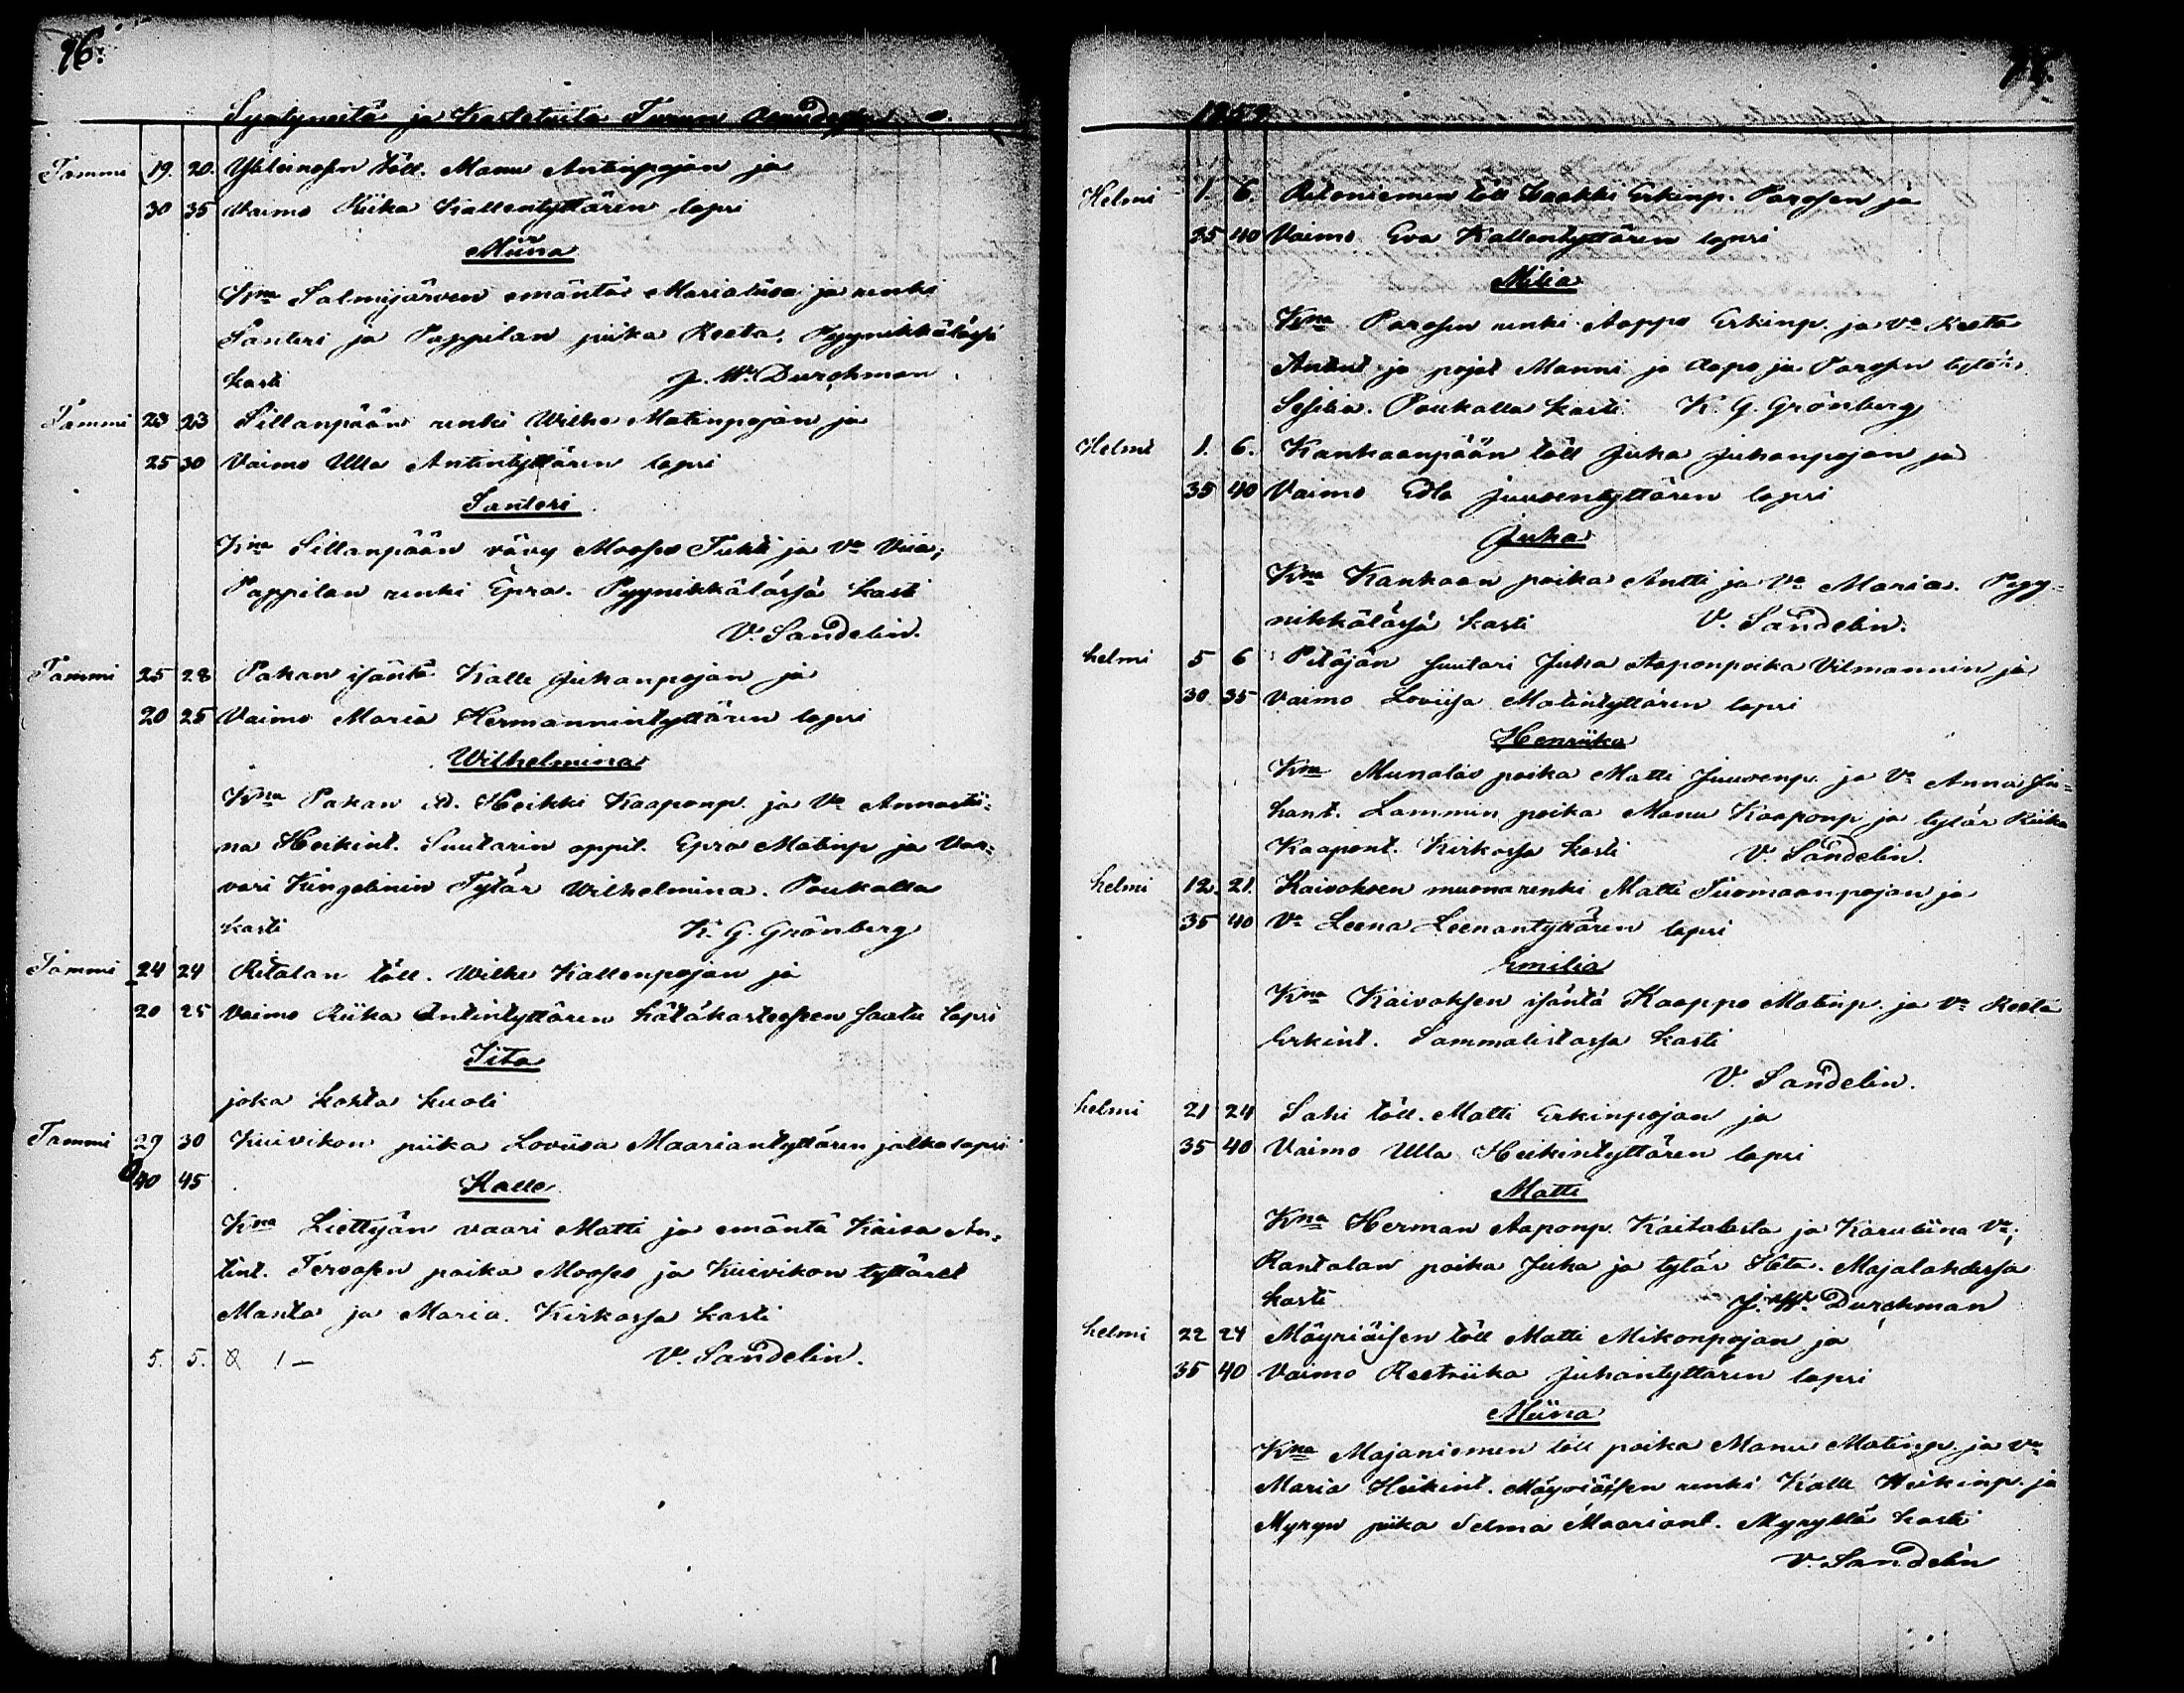 96.
Syntyneitä ja Kastetuita Turun
Tammi 19. 20. Yhteinosen töll. Manu Antinpojan ja
30 35 Vaimo Riika Kallentyttären lapsi
Miina
Kna Salmijärven emäntä Marialiisa ja renki
Santeri ja Pappilan piika Reeta. Pyynikkälässä
kasti J. W. Durchman
Tammi 23 23 Sillanpään renki Wilhe Matinpojan ja
25 30 Vaimo Ulla Antintyttären lapsi
Santeri
Kna Sillanpään vävy Mooses Tukki ja Vo Viia;
Pappilan renki Epra. Pyynikkälässä kasti
V. Sandelin.
Tammi 25 28 Pakan isäntä Kalle Juhanpojan ja
20 25 Vaimo Maria Hermannintyttären lapsi
Wilhelmina
Kna Pakan Heikki Kaaponp. ja Vo Annastii-
na Heikint. Suutarin oppil. Epra Matinp ja Vaa-
vari Kingelinin Tytär Wilhelmina. Poukalla
kasti K. G. Grönberg
Tammi 24 24 Ritalan töll. Wilhe Kallenpojan ja
20 25 Vaimo Riika Antintyttären hätäkasteesen saatu lapsi
Iita
joka kohta kuoli
Tammi 29 30 Kuivikon piika Loviisa Maariantyttären jalkalapsi
40 45
Kalle
Kna Liettyän vaari Matti ja emäntä Kaisa An-
tint. Tervosen poika Mooses ja Kuivikon tyttäret
Manta ja Maria. Kirkossa kasti
5. 5. V. Sandelin.
1859
Helmi 1. 6. Ritoniemen töll Erkinp. Parosen ja
35 40 Vaimo Eva Kallentyttären lapsi
Milia
Kna Parosen renki Aappo Erkinp. ja Vo Reeta
Antint ja pojat Manni ja Aapo ja Parosen tytär
Sesilia. Poukalla kasti K. G. Grönberg
Helmi 1. 6. Kankaanpään töll Juha Juhanpojan ja
35 40 Vaimo Edla Juusentyttären lapsi
Juha
Kna Kankaan poika Antti ja Vo Maria. Pyy-
nikkälässä kasti V. Sandelin.
helmi 5 6 Pitäjän suutari Juha Aaponpoika Vilmannin ja
30 35 Vaimo Loviisa Matintyttären lapsi
Henriika
Kna Munolas poika Matti Juusenp. ja Vo Anna Ju-
hant. Lammin poika Manu Kaaponp ja tytär Riika
Kaapont. Kirkossa kasti V. Sandelin.
helmi 12. 21. Kaivoksen muonarenki Matti Tuomaanpojan ja
35 40 Vo Leena Leenantyttären lapsi
Emilia
Kna Kaivoksen isäntä Kaappo Matinp. ja Vo Reeta
Erkint. Sammalistossa kasti
V. Sandelin.
helmi 21 24 Sahi töll. Matti Erkinpojan ja
35 40 Vaimo Ulla Heikintyttären lapsi
Matti
Kna Herman Aaponp. Kaitalasta ja Karuliina Vo;
Rantalan poika Juha ja tytär Heta. Majalahdessa
kasti J. W. Durchman
helmi 22 24 Mäyriäisen töll Matti Mikonpojan ja
35 40 Vaimo Reetriika Juhantyttären lapsi
Miina
Kna Majaniemen töll poika Manu Matinp. ja Vo
Maria Heikint. Mäyriäisen renki Kalle Heikinp. ja
Myryn piika Selma Maariant. Myryllä kasti
V. Sandelin